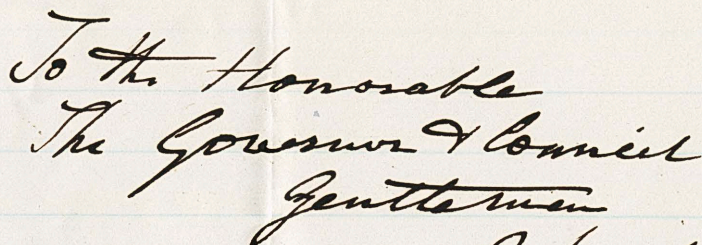 To the Honorable
The Governor & Council
Gentlemen